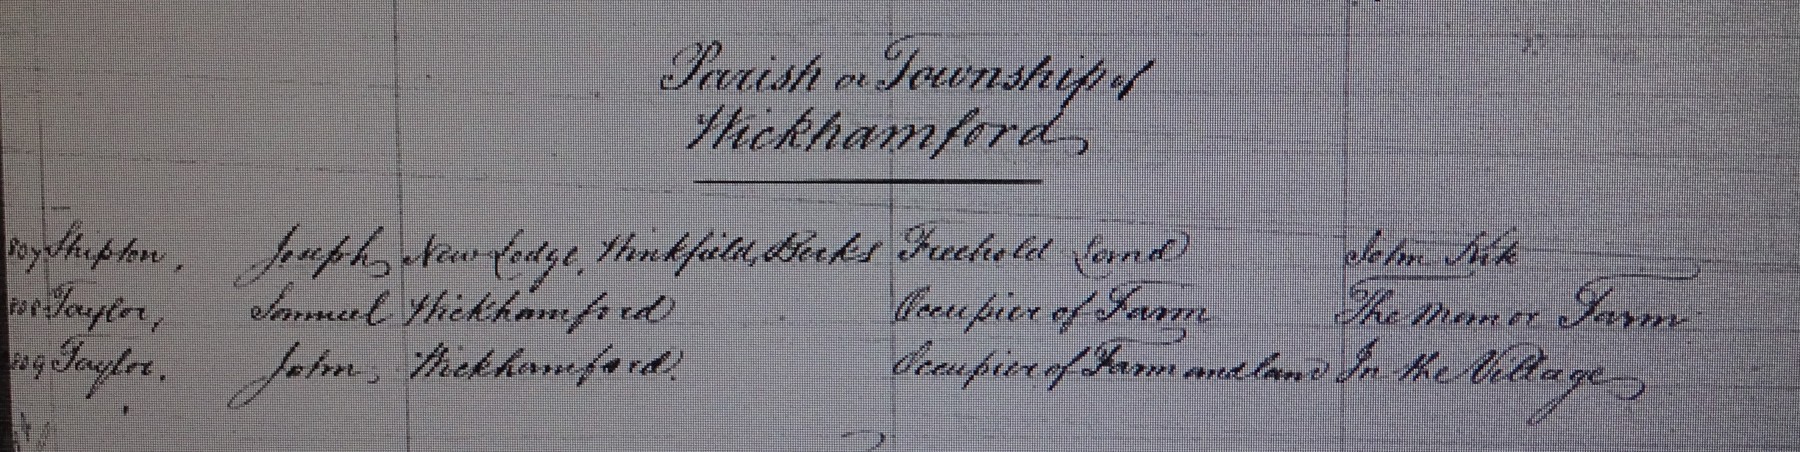 Parish or Township of
Wickhamford
807 Shipton, Joseph New Lodge, Winkfield, Berks Freehold Land John
808 Taylor, Samuel Wickhamford Occupier of Farm The Manor Farm
809 Taylor, John, Wickhamford. Occupier of Farm and land In the Village